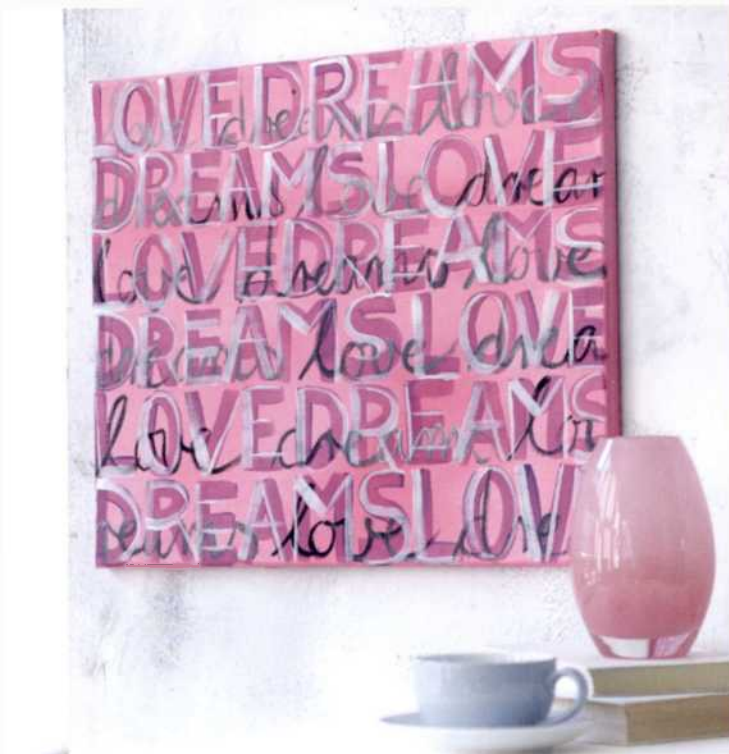 LOVEDREAMS
love dreams love
DREAMSLOVE
dreams love drear
LOVEDREAMS
love dreams love
DREAMSLOVE
dreams love drea
LOVEDREAMS
love dreams lov
DREAMSLOV
reams love dre